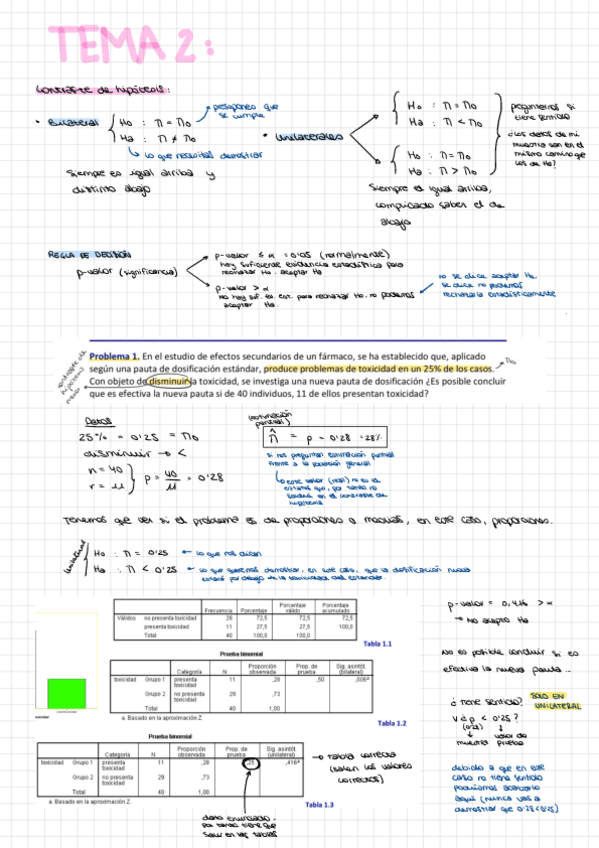 TEMA 2:
Contraste de hipótesis:
• Bilateral
Ho : π = πo
Ha : π ≠ πo
presuponeo que se cumple
lo que necesitas demostrar
Siempre es igual arriba y
distinto abajo
• Unilaterales
Ho : π = πo
Ha : π < πo
Ho : π = πo
Ha : π > πo
preguntarnos si
tiene sentido
¿los datos de mi
muestra van en el
mismo camino que
los de Ha?
Siempre es igual arriba,
complicado saber el de
abajo
REGLA DE DECISIÓN
p-valor (significancia)
p-valor ≤ α = 0'05 (normalmente)
hay suficiente evidencia estadística para
rechazar Ho. aceptar Ha
p-valor > α
no hay suf. ev. est. para rechazar Ho. no podemos
aceptar Ha.
no se dice aceptar Ho,
se dice no podemos
rechazarla estadísticamente
Problema 1. En el estudio de efectos secundarios de un fármaco, se ha establecido que, aplicado
según una pauta de dosificación estándar, produce problemas de toxicidad en un 25% de los casos.
Con objeto de disminuir la toxicidad, se investiga una nueva pauta de dosificación ¿Es posible concluir
que es efectiva la nueva pauta si de 40 individuos, 11 de ellos presentan toxicidad?
πo
contraste de hipótesis
Datos
25% = 0'25 = πo
disminuir → <
n = 40
r = 11
p = 40/11 = 0'28
(estimación puntual)
π̂ = p = 0'28 = 28%
si nos preguntan estimación puntual
frente a la población general
Tenemos que ver si el problema es de proporciones o medias, en este caso, proporciones.
Unilateral
Ho : π = 0'25 ← lo que nos dicen
Ha : π < 0'25 ← lo que queremos demostrar, en este caso, que la dosificación nueva
estará por debajo de la toxicidad del estándar.
Frecuencia Porcentaje Porcentaje válido Porcentaje acumulado
Válidos no presenta toxicidad 29 72,5 72,5 72,5
presenta toxicidad 11 27,5 27,5 100,0
Total 40 100,0 100,0
Tabla 1.1
Prueba binomial
Categoría N Proporción observada Prop. de prueba Sig. asintót. (bilateral)
toxicidad Grupo 1 presenta toxicidad 11 ,28 ,50 ,006ª
Grupo 2 no presenta toxicidad 29 ,73
Total 40 1,00
a. Basado en la aproximación Z.
Tabla 1.2
Prueba binomial
Categoría N Proporción observada Prop. de prueba Sig. asintót. (unilateral)
toxicidad Grupo 1 presenta toxicidad 11 ,28 ,25 ,416ª
Grupo 2 no presenta toxicidad 29 ,73
Total 40 1,00
a. Basado en la aproximación Z.
Tabla 1.3
→ Tabla correcta
(salen los valores
correctos)
dato enunciado.
por tanto tiene que
salir en las tablas
p-valor = 0,416 > α
→ No acepto Ha
No es posible concluir si es
efectiva la nueva pauta...
¿ tiene sentido?
SOLO EN
UNILATERAL
p < 0'25 ?
valor de
muestra prueba
debido a que en este
caso no tiene sentido
podríamos acabarlo
aquí (nunca vas a
demostrar que 0'28<0'25)